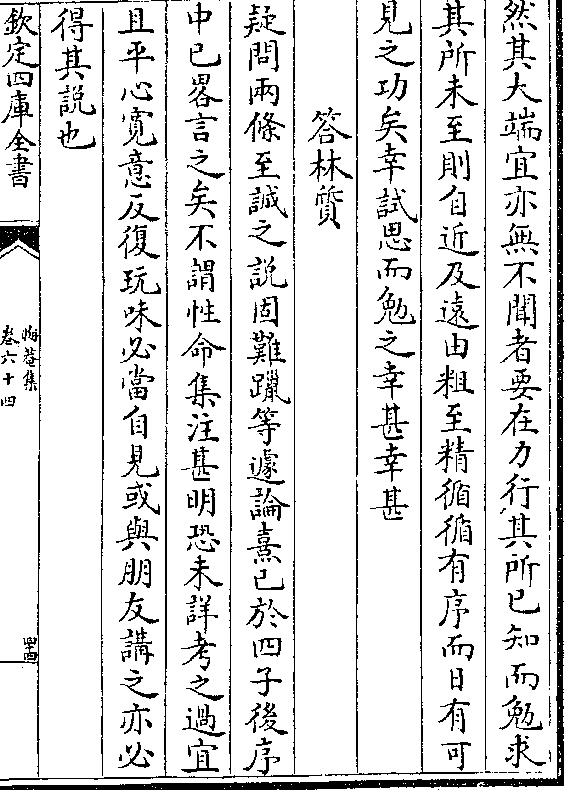 然其大端宜亦無不聞者要在力行其所已知而勉求
其所未至則自近及遠由粗至精循循有序而日有可
見之功矣幸試思而勉之幸甚幸甚
答林質
疑問兩條至誠之説固難躐等遽論熹已於四子後序
中已畧言之矣不謂性命集注甚明恐未詳考之過宜
且平心寛意反復玩味必當自見或與朋友講之亦必
得其説也
欽定四庫全書
晦菴集
卷六十四
四十四